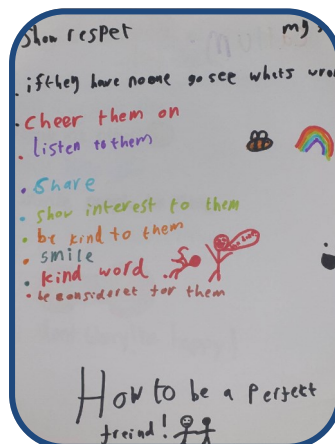 Show respet
. if they have noone go see whats
. Cheer them on
. listen to them
. Share
. show interest to them
. be kind to them
. smile
. kind word
. be consideret for them
How to be a Perfect
freind!